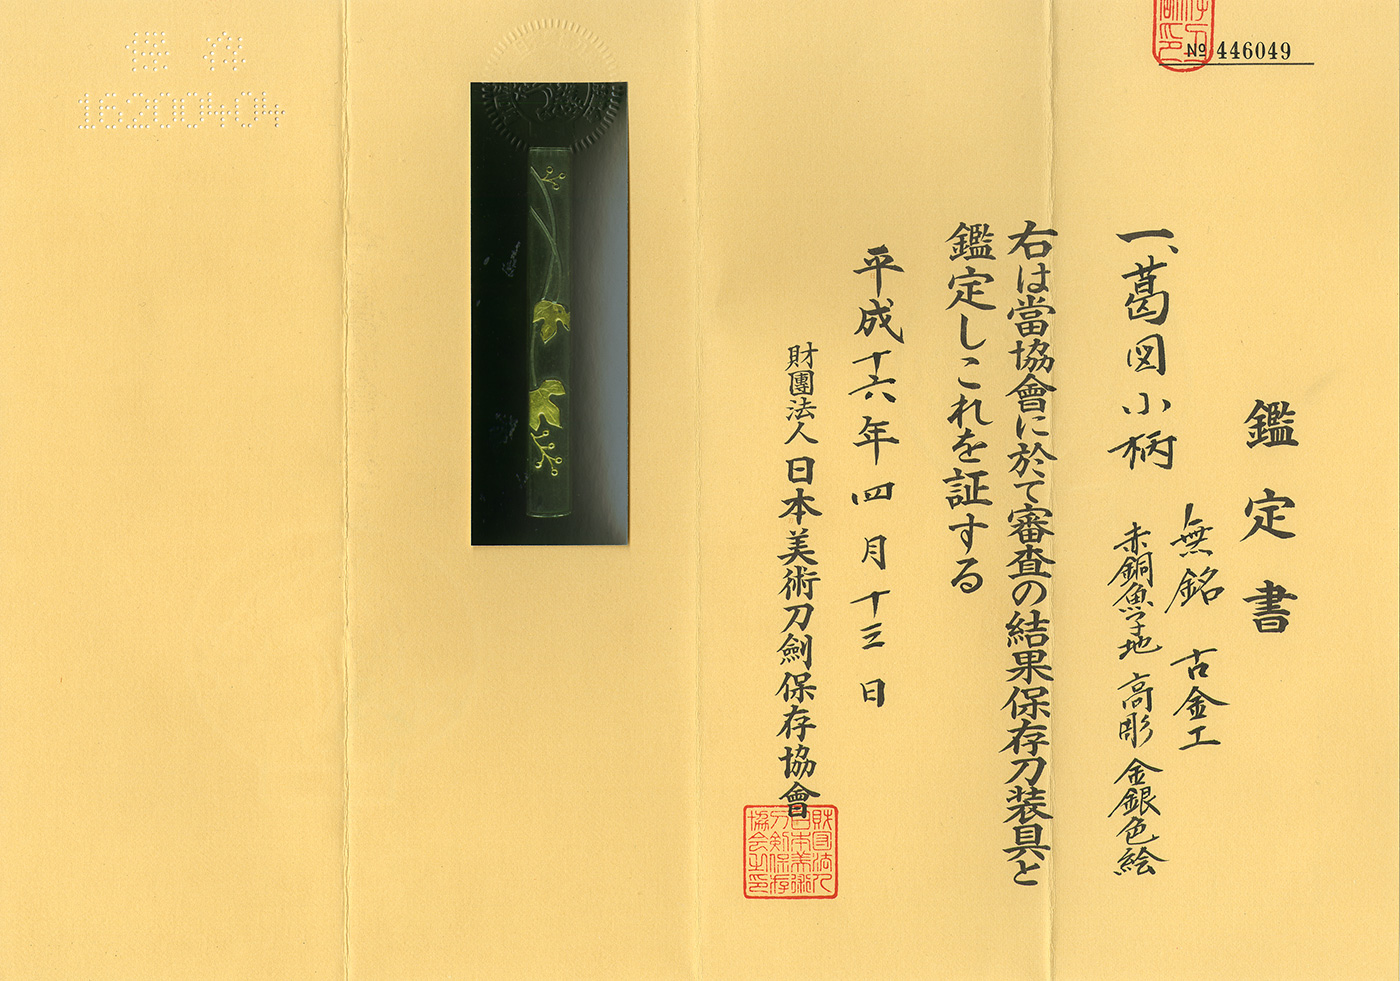 № 446049
鑑定書
一、葛図小柄
無銘 古金工
赤銅魚々子地 高彫 金銀色絵
右は當協會に於て審査の結果保存刀装具と
鑑定しこれを証する
平成十六年四月十三日
財團法人日本美術刀劍保存協會
財団法人
日本美術
刀剣保存
協会之印
保存
16200404